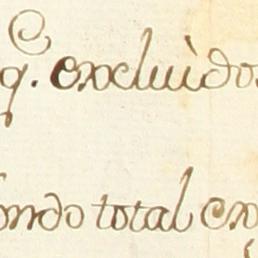 q. excluìdos
ondo total ex